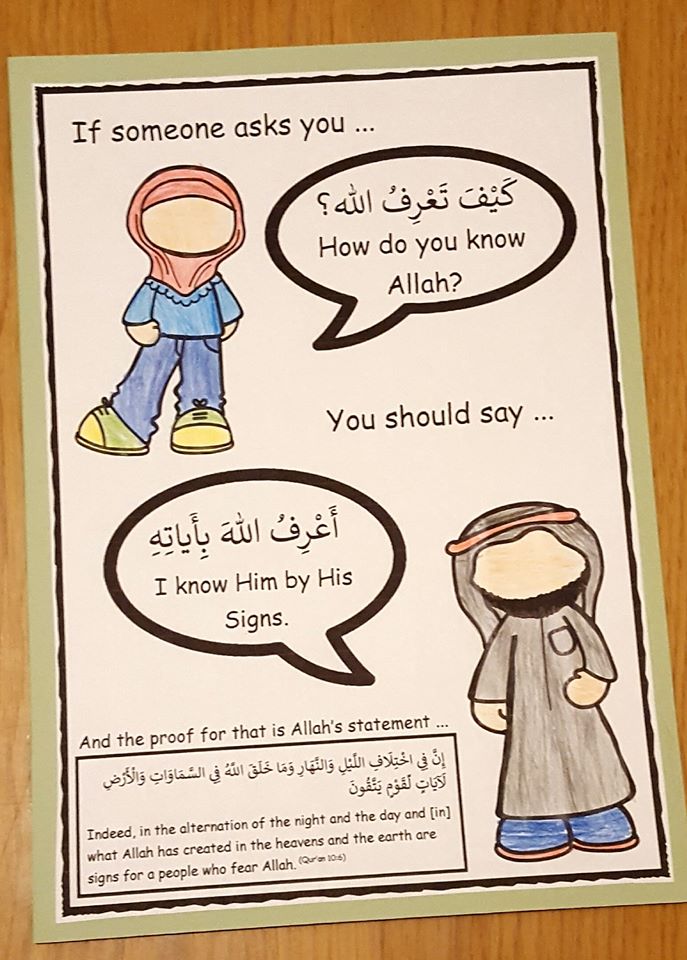 If someone asks you ...
كَيْفَ تَعْرِفُ الله؟
How do you know
Allah?
You should say ...
أَعْرِفُ اللهَ بِأَياتِهِ
I know Him by His
Signs.
And the proof for that is Allah's statement ...
إِنَّ فِي اخْتِلَافِ اللَّيْلِ وَالنَّهَارِ وَمَا خَلَقَ اللَّهُ فِي السَّمَاوَاتِ وَالْأَرْضِ
لَآيَاتٍ لِّقَوْمٍ يَتَّقُونَ
Indeed, in the alternation of the night and the day and [in]
what Allah has created in the heavens and the earth are
signs for a people who fear Allah. (Qur'an 10:6)